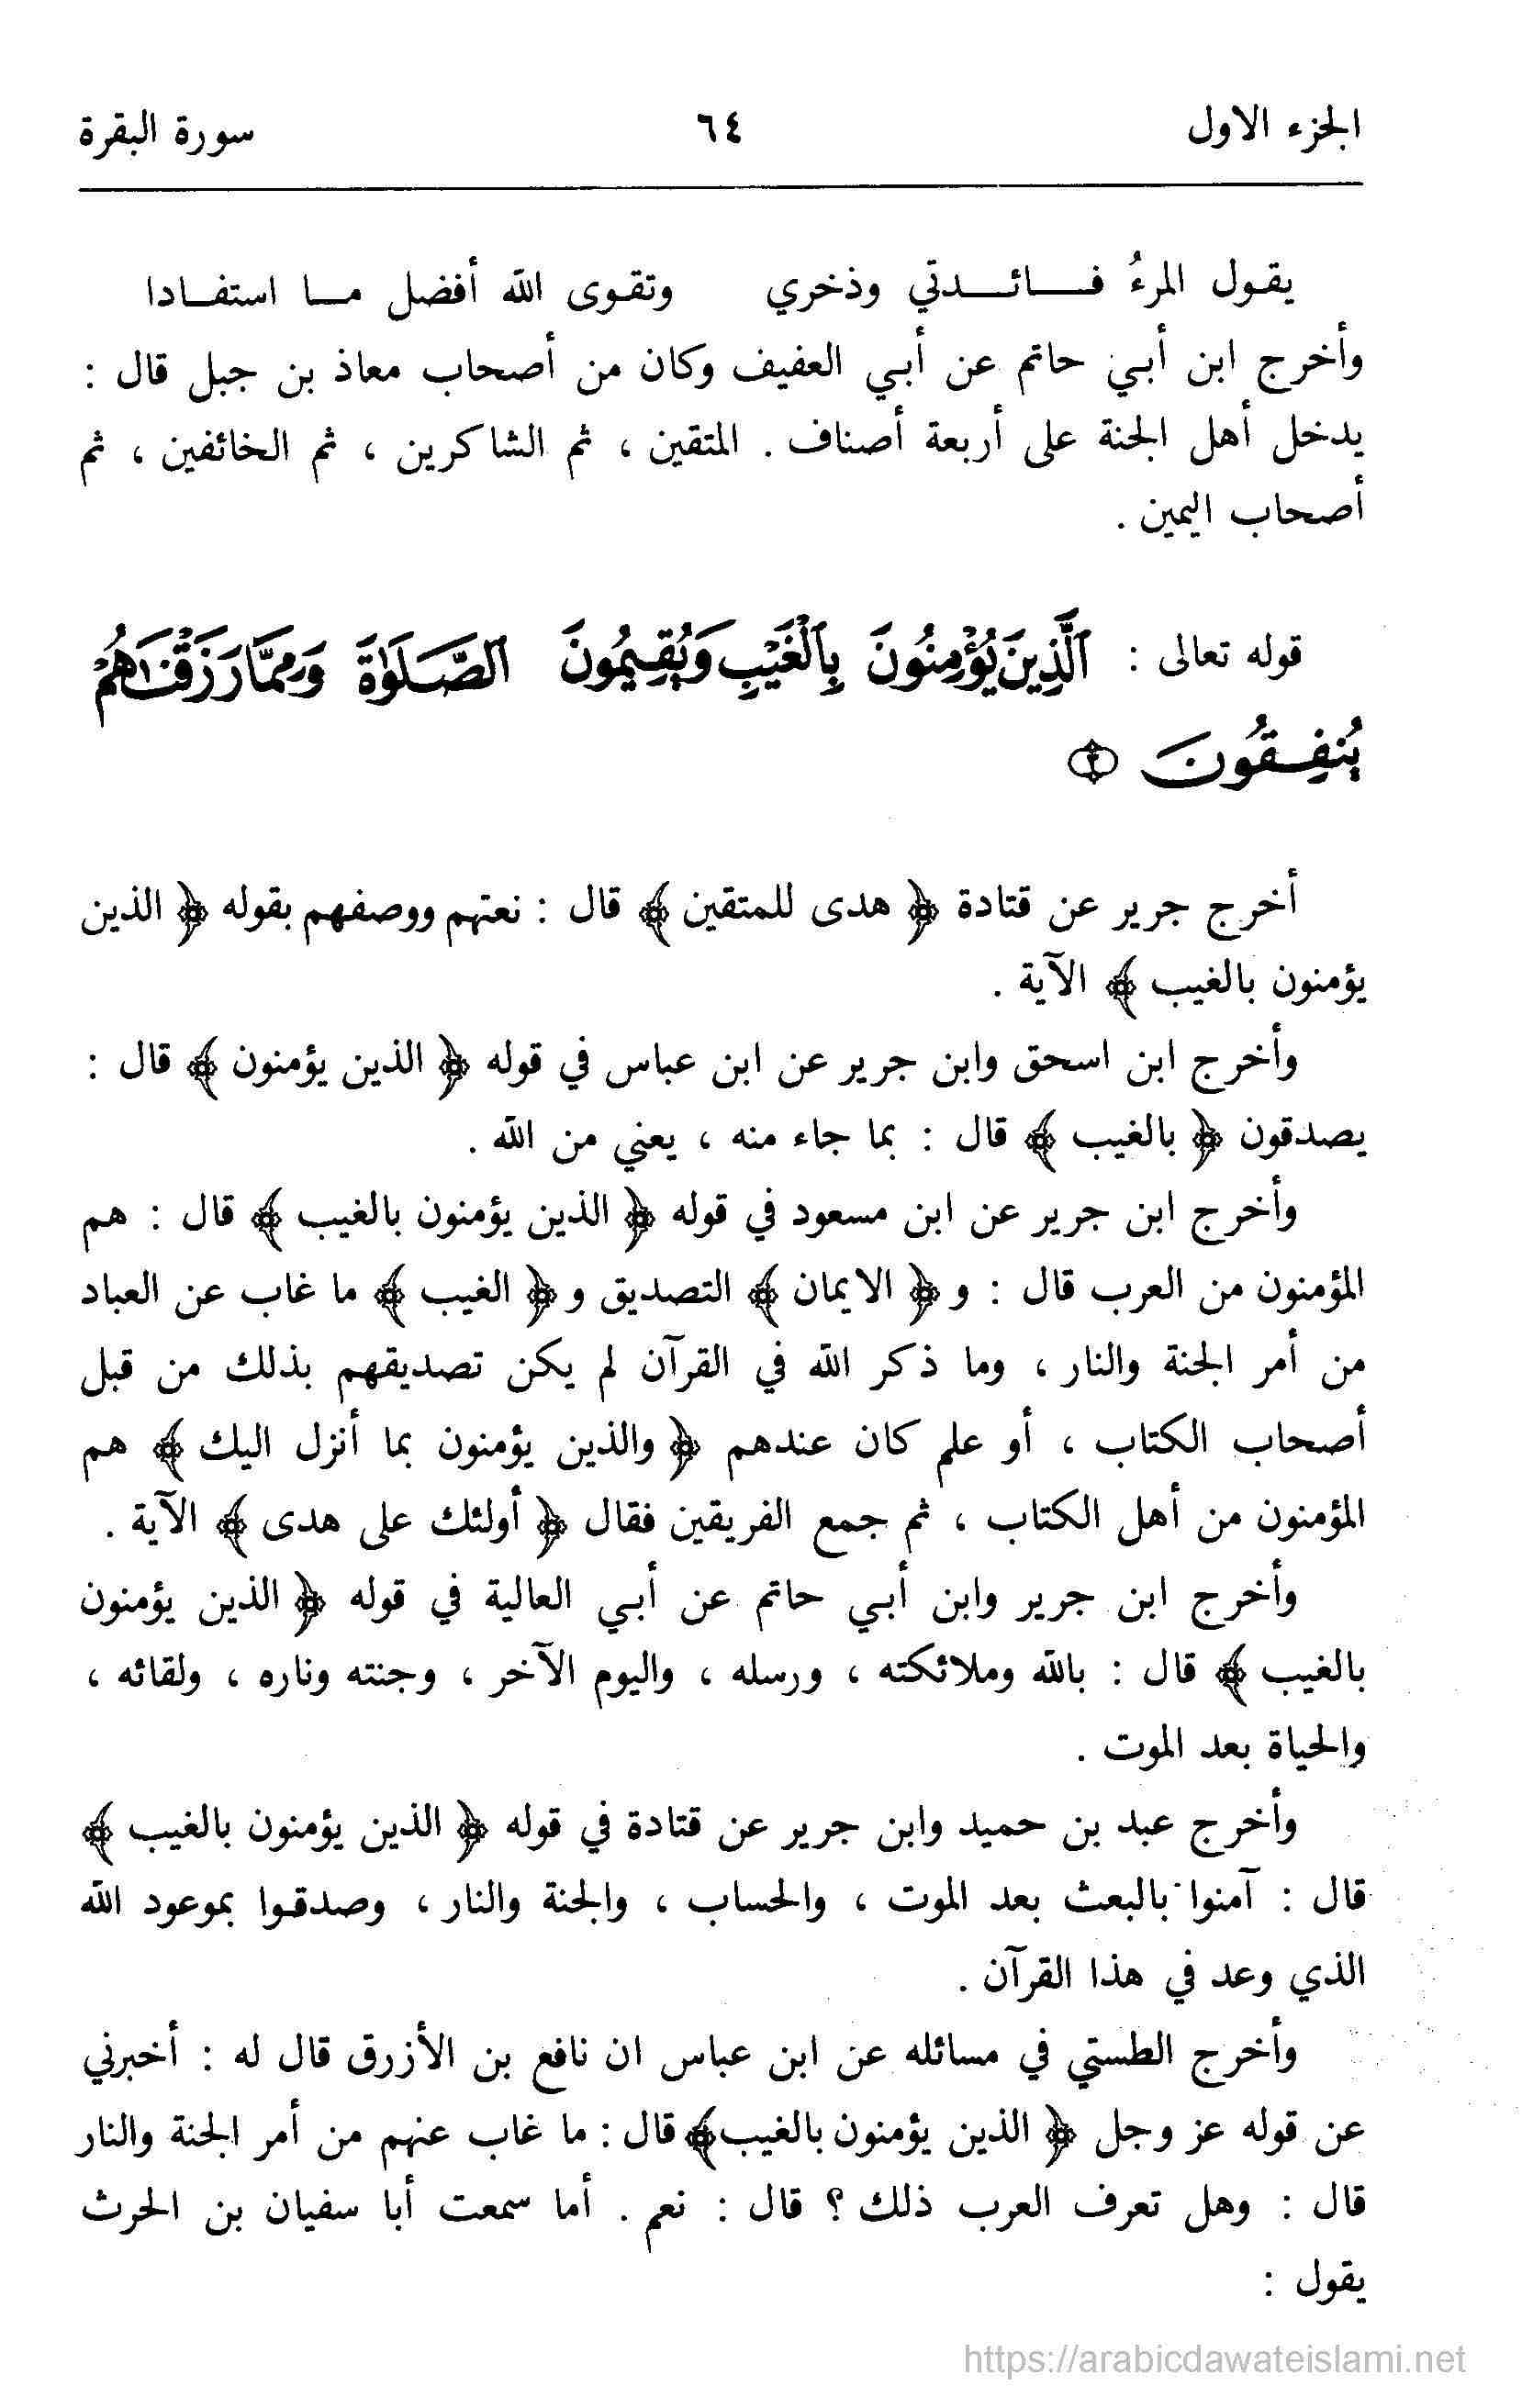 الجزء الاول ٦٤ سورة البقرة
يقول المرءُ فائدتي وذخري وتقوى الله أفضل ما استفادا
وأخرج ابن أبي حاتم عن أبي العفيف وكان من أصحاب معاذ بن جبل قال :
يدخل أهل الجنة على أربعة أصناف . المتقين ، ثم الشاكرين ، ثم الخائفين ، ثم
أصحاب اليمين .
قوله تعالى : ٱلَّذِينَ يُؤْمِنُونَ بِٱلْغَيْبِ وَيُقِيمُونَ ٱلصَّلَوٰةَ وَمِمَّا رَزَقْنَاهُمْ
يُنفِقُونَ ٣
أخرج جرير عن قتادة ﴿ هدى للمتقين ﴾ قال : نعتهم ووصفهم بقوله ﴿ الذين
يؤمنون بالغيب ﴾ الآية .
وأخرج ابن اسحق وابن جرير عن ابن عباس في قوله ﴿ الذين يؤمنون ﴾ قال :
يصدقون ﴿ بالغيب ﴾ قال : بما جاء منه ، يعني من الله .
وأخرج ابن جرير عن ابن مسعود في قوله ﴿ الذين يؤمنون بالغيب ﴾ قال : هم
المؤمنون من العرب قال : و ﴿ الايمان ﴾ التصديق و ﴿ الغيب ﴾ ما غاب عن العباد
من أمر الجنة والنار ، وما ذكر الله في القرآن لم يكن تصديقهم بذلك من قبل
أصحاب الكتاب ، أو علم كان عندهم ﴿ والذين يؤمنون بما أنزل اليك ﴾ هم
المؤمنون من أهل الكتاب ، ثم جمع الفريقين فقال ﴿ أولئك على هدى ﴾ الآية .
وأخرج ابن جرير وابن أبي حاتم عن أبي العالية في قوله ﴿ الذين يؤمنون
بالغيب ﴾ قال : بالله وملائكته ، ورسله ، واليوم الآخر ، وجنته وناره ، ولقائه ،
والحياة بعد الموت .
وأخرج عبد بن حميد وابن جرير عن قتادة في قوله ﴿ الذين يؤمنون بالغيب ﴾
قال : آمنوا بالبعث بعد الموت ، والحساب ، والجنة والنار ، وصدقوا بموعود الله
الذي وعد في هذا القرآن .
وأخرج الطستي في مسائله عن ابن عباس ان نافع بن الأزرق قال له : أخبرني
عن قوله عز وجل ﴿ الذين يؤمنون بالغيب ﴾ قال : ما غاب عنهم من أمر الجنة والنار
قال : وهل تعرف العرب ذلك ؟ قال : نعم . أما سمعت أبا سفيان بن الحرث
يقول :
https://arabicdawateislami.net